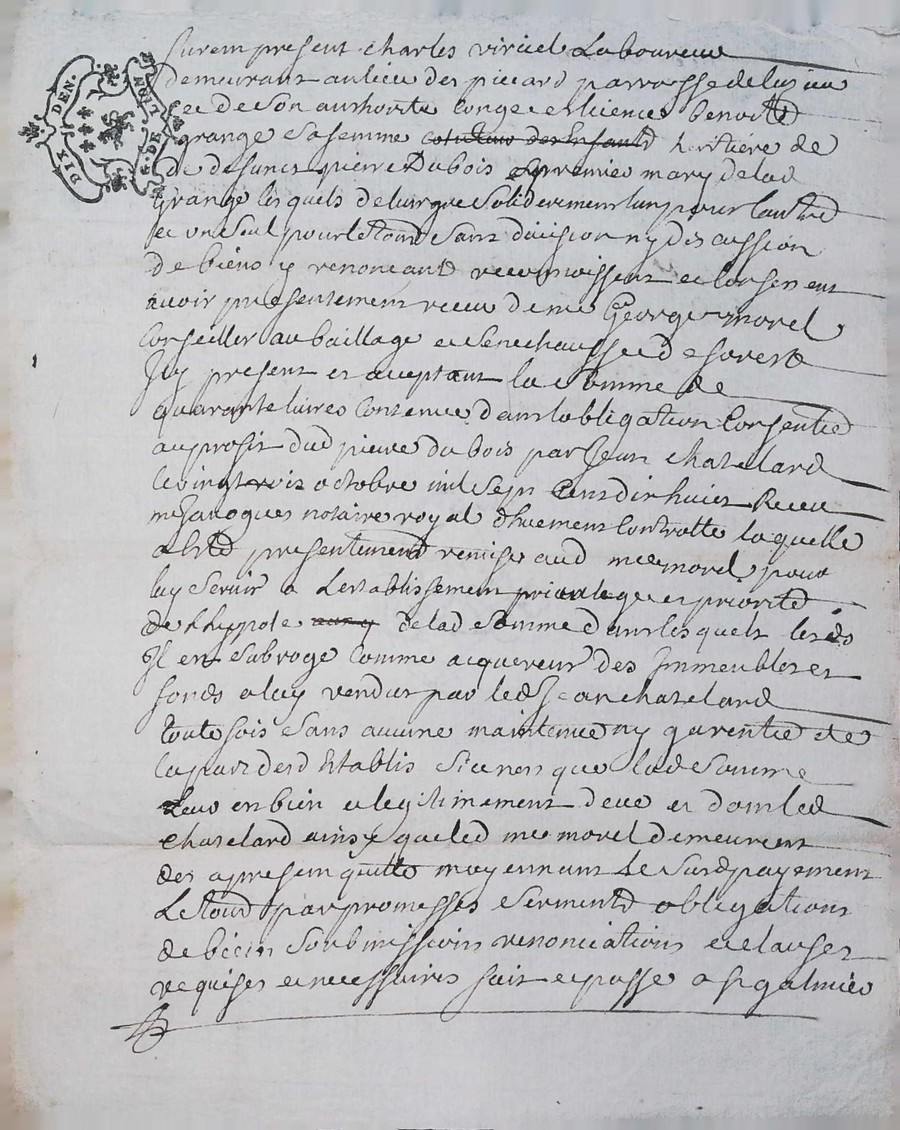 DIX DEN. G. DE LYON
furent present charles viricel Laboureur
demeurant au lieu des picard parroisse de
et de son authorite conge et licence benoite
grange sa femme heritiere de
de defunct pierre Dubois premier mary de lad
grange lesquels de leur gre solidairement lun pour lautre
et un seul pour le tout sans division ny discussion
de biens y renoncant reconnoissent et confessent
avoir presentement receu de me George morel
Conseiller au baillage et senechaussee de forest
Icy present et aceptant la somme de
quarante livres contenue dans lobligation Consentie
au profit dud pierre du bois par Jean chatelard
le vingt trois octobre mil sept Cens dix huict Receu
me notaire royal duement Controlle laquelle
a este presentement remise aud me morel pour
luy servir a Lestablissement et priorite
de lhippoteque de lad somme dans lesquels lesd
Il en subroge comme acquereur des Immeubles et
fonds a luy vendus par led Jean chatelard
toutefois sans aucune maintenue ny garentie de
la part desd Establis si ce nest que lad somme
Leur est bien et legitimement deue et dont led
chatelard ainsy que led me morel demeurent
des apresent quitte moyennant Le susd payement
Le tout par promesses serment obligations
de biens soubmissions renonciations et clauses
requises et necessaires fait et passe a st galmier